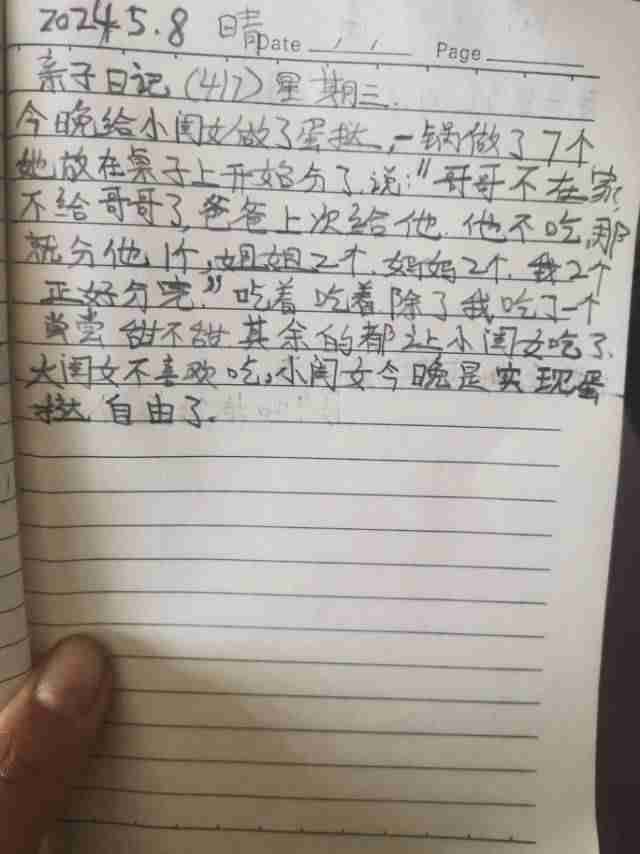 2024.5.8 晴 Date / / Page
亲子日记 (417) 星期三.
今晚给小闺女做了蛋挞,一锅做了7个
她放在桌子上开始分了.说:"哥哥不在家
不给哥哥了,爸爸上次给他.他不吃,那
就分他1个,姐姐2个.妈妈2个.我2个
正好分完."吃着吃着.除了我吃了一个
尝尝甜不甜其余的都让小闺女吃了.
大闺女不喜欢吃。小闺女今晚是实现蛋
挞自由了.